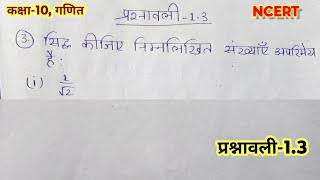 कक्षा-10, गणित
प्रश्नावली-1.3
NCERT
③ सिद्ध कीजिए निम्नलिखित संख्याएँ अपरिमेय
है :
(i) 1/√2
प्रश्नावली-1.3